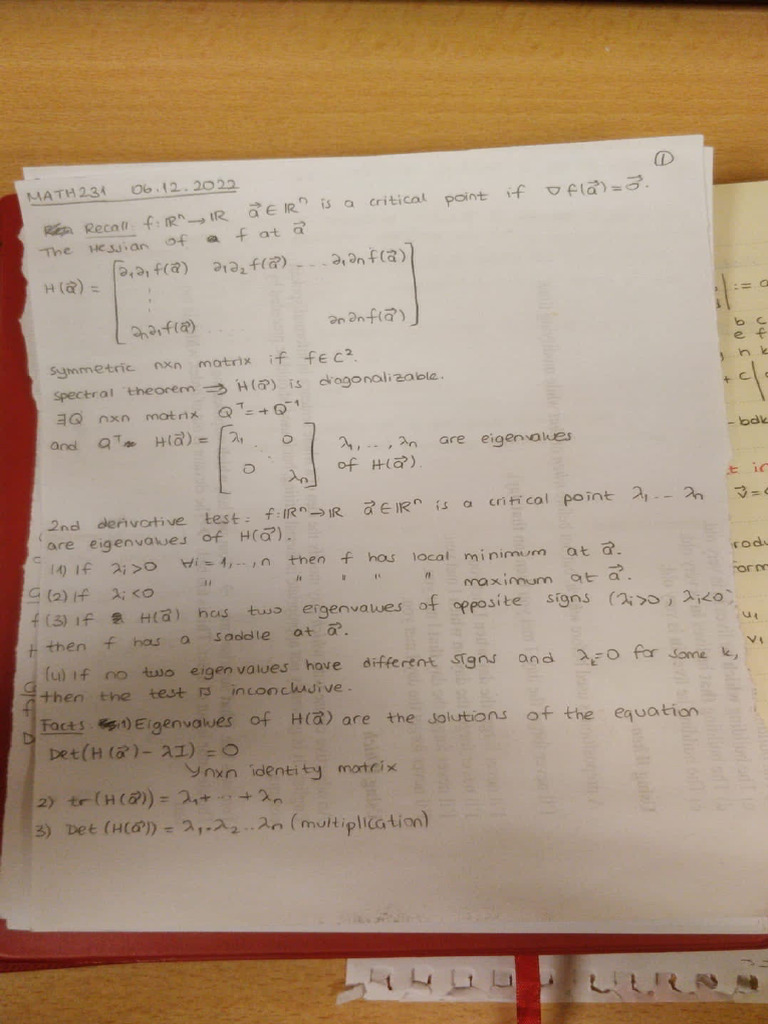 ①
MATH231 06.12.2022
Recall: f: ℝⁿ→ℝ a⃗ ∈ ℝⁿ is a critical point if ∇f(a⃗)=0⃗.
The Hessian of f at a⃗
H(a⃗) = [∂₁∂₁f(a⃗) ∂₁∂₂f(a⃗) ... ∂₁∂nf(a⃗)
⋮
∂n∂₁f(a⃗) ... ∂n∂nf(a⃗)]
symmetric nxn matrix if f∈C².
spectral theorem ⇒ H(a⃗) is diagonalizable.
∃Q nxn matrix Qᵀ=+Q⁻¹
and Qᵀ H(a⃗) = [λ₁ ⋱ 0 λ₁,..,λn are eigenvalues
0 λn] of H(a⃗).
2nd derivative test: f:ℝⁿ→ℝ a⃗∈ℝⁿ is a critical point λ₁ ... λn
are eigenvalues of H(a⃗).
(1) If λi>0 ∀i=1,..,n then f has local minimum at a⃗.
(2) If λi<0 " " " " " maximum at a⃗.
(3) If H(a⃗) has two eigenvalues of opposite signs (λi>0, λj<0)
then f has a saddle at a⃗.
(4) If no two eigenvalues have different signs and λk=0 for some k,
then the test is inconclusive.
Facts 1) Eigenvalues of H(a⃗) are the solutions of the equation
Det(H(a⃗) - λI) = 0
↳nxn identity matrix
2) tr(H(a⃗)) = λ₁+ ... +λn
3) Det(H(a⃗)) = λ₁.λ₂...λn (multiplication)
:= a
b c
e f
h k
+ c
-bdk
t in
v⃗=
rodu
form
u₁
v₁